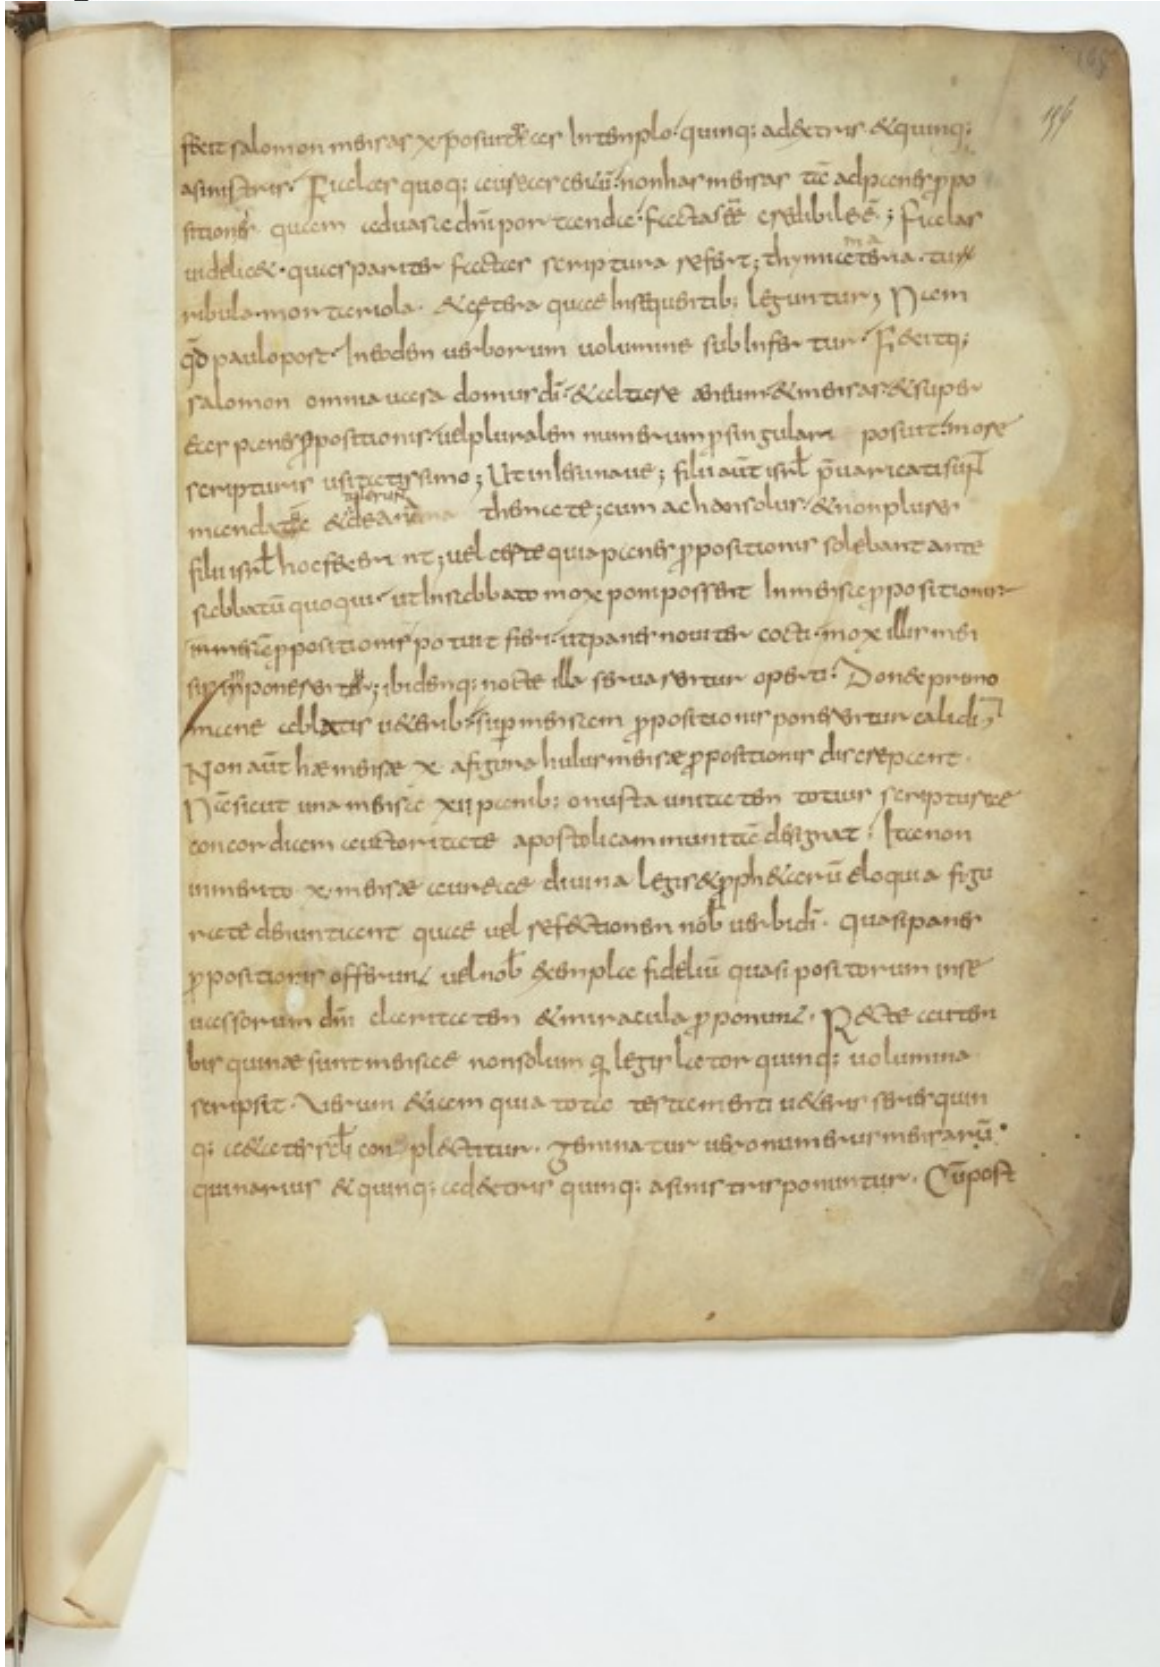 fecit salomon mensas x. posuitq; eas in templo. quinq; ad dextris & quinq;
a sinistris. Fialas quoq; aureas centū. non has mensas tā ad panes p̄po
sitionis. quam ad vasa dn̄i portanda. factas ēē credibile ē; Fialas
uidelic&. quas pariter factas scriptura refert; thymiamateria. tur
ribula. mortariola. & cetera quae in sequentib; leguntur; Nam
qđ paulo post. in eodem uerborum uolumine subinfertur. Fecitq;
salomon omnia uasa domus dī. & altare aureum. & mensas. & super
eas panes p̄positionis. uel pluralem numerum p̄ singulari posuit. more
scripturis usitatissimo; Ut in iesu naue; filii aūt isrl̄ p̄uaricati sūt
mandatū & de anathemate; cum achan solus. & non plures
filii isrl̄ hoc fecerint; uel certe quia panes p̄positionis solebant ante
sabbatū quoqui. ut in sabbato mox poni possent in mensa p̄positionis
in mensa p̄positionis potuit fieri. ut panes nouiter cocti. mox illis men
sis inponerentur; ibidemq; nocte illa seruarentur operti. Donec primo
mane ablatis ueterib; sup mensam p̄positionis ponerentur calidi;
Non aūt hae mensae x. a figura huius mensae p̄positionis discrepant.
Nā sicut una mensa xii panib; onusta unitatem totius scripturae
concordiam auctoritate apostolica munitā designat. Ita non
inmerito x. mensae aureae diuina legis & p̄ph&arū eloquia figu
rate denuntiant quae uel refectionem nob̄ uerbi dī. quasi panes
p̄positionis offerunt uel nob̄ exempla fideliū quasi positorum in se
uasorum dn̄i claritatem & miracula p̄ponunt. Recte autem
bis quinae sunt mensae non solum q̄ legis lator quinq; uolumina
scripsit. Verum &iam quia tota testamenti u&eris series quin
q; aetates sc̄li conplectitur. Geminatur uero numerus mensarū
quinarius & quinq; a dextris quinq; a sinistris ponuntur. Cū post
165
156